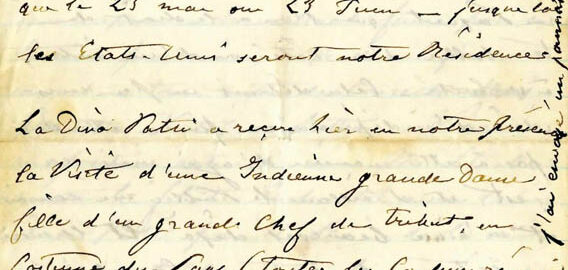 que le 23 mai ou 23 Juin – jusque là
les Etats-Unis seront notre Résidence
La Diva Patti a reçue hier en notre présen
la Visite d'une Indienne grande Dame
fille d'un grand Chef de tribut, en
Costume du Pays (toutes les
j'ai envoyé un